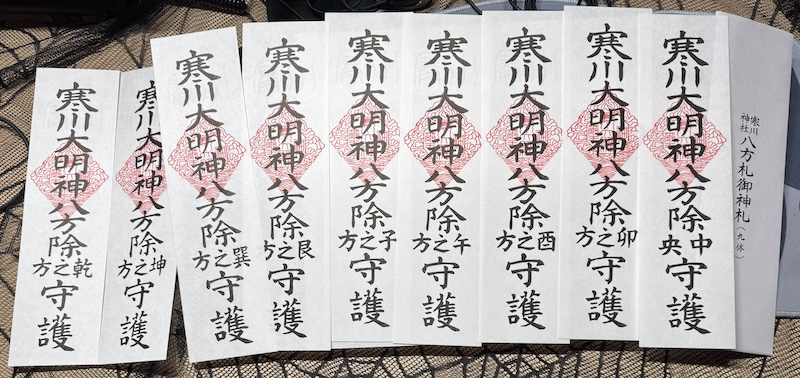 寒川神社八方札御神札（九体）
寒川大明神八方除中央守護
寒川大明神八方除卯之方守護
寒川大明神八方除酉之方守護
寒川大明神八方除午之方守護
寒川大明神八方除子之方守護
寒川大明神八方除艮之方守護
寒川大明神八方除巽之方守護
寒川大明神八方除坤之方守護
寒川大明神八方除乾之方守護